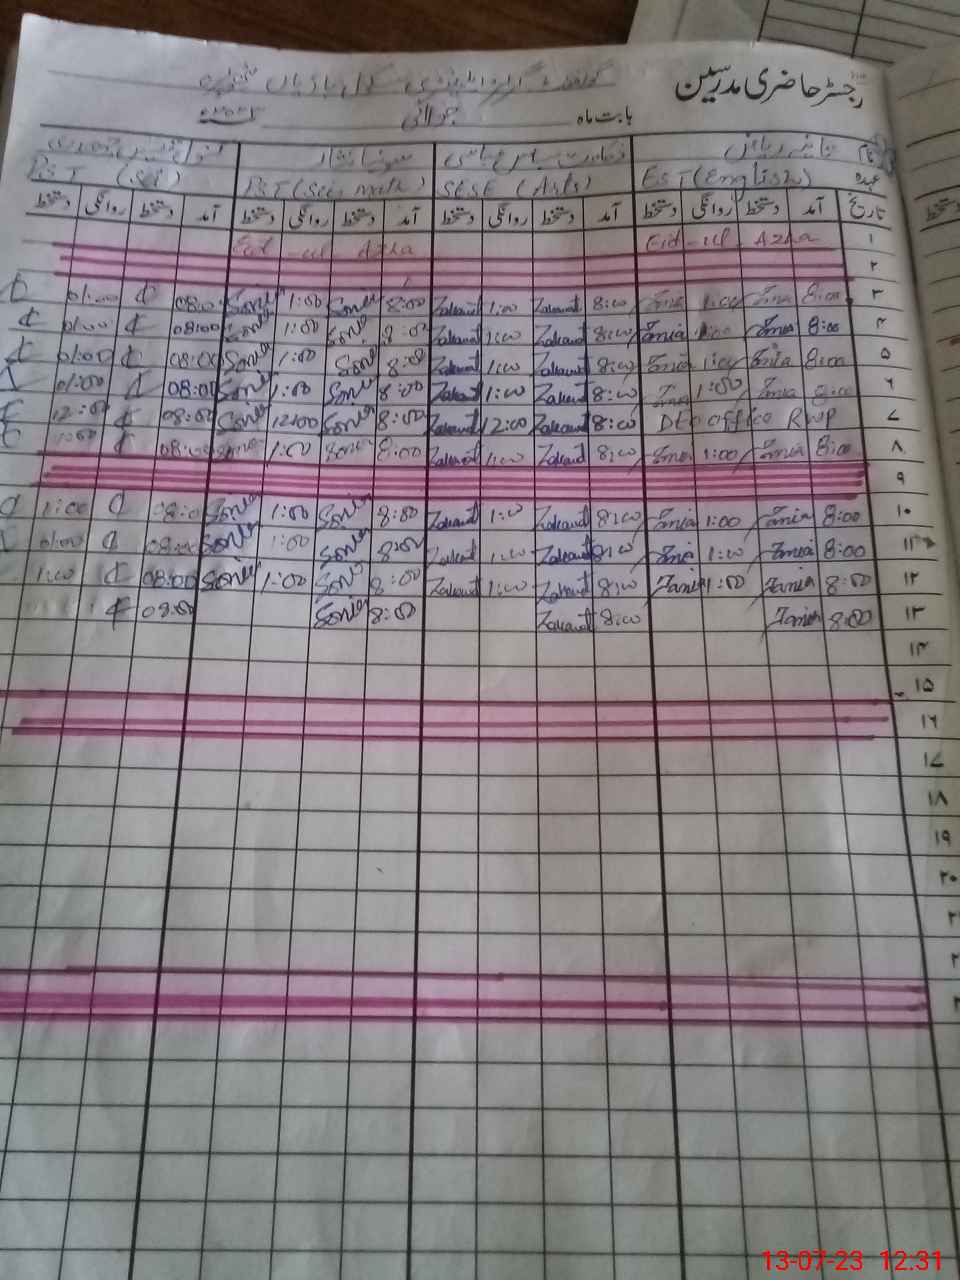 رجسٹر حاضری مدرسین
بابت ماہ جولائی
نام
عہدہ EST (English) SESE (Arts) PST (Sci math) PST (Sci)
تاریخ آمد دستخط روانگی دستخط آمد دستخط روانگی دستخط آمد دستخط روانگی دستخط آمد دستخط روانگی دستخط
۱ Eid-ul-Azha Eid-ul-Azha
۲
۳ 8:00 Tania 1:00 Tania 8:00 Zakawat 1:00 Zakawat 8:00 Sonia 1:00 Sonia 08:00 01:00
۴ 8:00 Tania 1:00 Tania 8:00 Zakawat 1:00 Zakawat 8:00 Sonia 1:00 Sonia 08:00 01:00
۵ 8:00 Tania 1:00 Tania 8:00 Zakawat 1:00 Zakawat 8:00 Sonia 1:00 Sonia 08:00 01:00
۶ 8:00 Tania 1:00 Tania 8:00 Zakawat 1:00 Zakawat 8:00 Sonia 1:00 Sonia 08:00 01:00
۷ DEO office RWP 8:00 Zakawat 12:00 Zakawat 8:00 Sonia 12:00 Sonia 08:00 12:00
۸ 8:00 Tania 1:00 Tania 8:00 Zakawat 1:00 Zakawat 8:00 Sonia 1:00 Sonia 08:00
۹
۱۰ 8:00 Tania 1:00 Tania 8:00 Zakawat 1:00 Zakawat 8:00 Sonia 1:00 Sonia 08:00 1:00
۱۱ 8:00 Tania 1:00 Tania 8:00 Zakawat 1:00 Zakawat 8:00 Sonia 1:00 Sonia 08:00 01:00
۱۲ 8:00 Tania 1:00 Tania 8:00 Zakawat 1:00 Zakawat 8:00 Sonia 1:00 Sonia 08:00 1:00
۱۳ 8:00 Tania 8:00 Zakawat 8:00 Sonia 08:00
۱۴
۱۵
۱۶
۱۷
۱۸
۱۹
۲۰
13-07-23 12.31